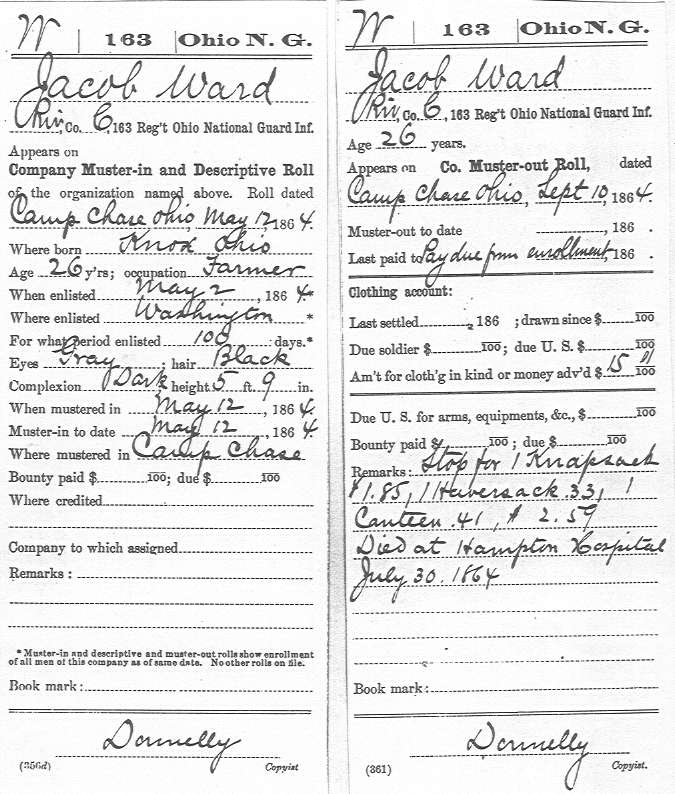 W | 163 | Ohio N. G.
Jacob Ward
Priv, Co. C, 163 Reg't Ohio National Guard Inf.
Appears on
Company Muster-in and Descriptive Roll
of the organization named above. Roll dated
Camp Chase Ohio, May 12, 1864.
Where born Knox Ohio
Age 26 y'rs; occupation Farmer
When enlisted May 2, 1864.*
Where enlisted Washington *
For what period enlisted 100 days.*
Eyes Gray; hair Black
Complexion Dark height 5 ft. 9 in.
When mustered in May 12, 1864.
Muster-in to date May 12, 1864
Where mustered in Camp Chase
Bounty paid $ 100; due $ 100
Where credited
Company to which assigned
Remarks:
* Muster-in and descriptive and muster-out rolls show enrollment
of all men of this company as of same date. No other rolls on file.
Book mark:
Donnelly
(356d) Copyist
W | 163 | Ohio N. G.
Jacob Ward
Priv, Co. C, 163 Reg't Ohio National Guard Inf.
Age 26 years.
Appears on Co. Muster-out Roll, dated
Camp Chase Ohio, Sept 10, 1864.
Muster-out to date , 186 .
Last paid to Pay due from enrollment, 186 .
Clothing account:
Last settled , 186 ; drawn since $ 100
Due soldier $ 100; due U. S. $ 100
Am't for cloth'g in kind or money adv'd $ 15 100
Due U. S. for arms, equipments, &c., $ 100
Bounty paid $ 100; due $ 100
Remarks: Stop for 1 Knapsack
$1.85, 1 Haversack .33, 1
Canteen .41, $ 2.59
Died at Hampton Hospital
July 30. 1864
Book mark:
Donnelly
(361) Copyist.